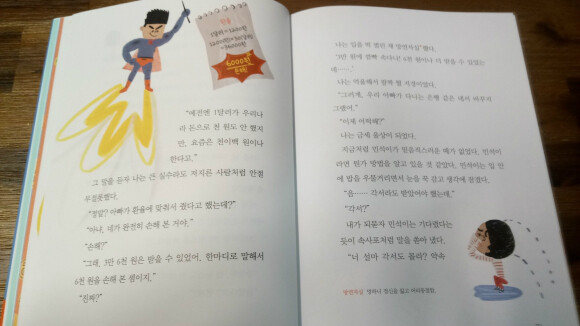 환율
1달러=1200원
6000원
손해
"예전엔 1달러가 우리나
라 돈으로 천 원도 안 했지
만, 요즘은 천이백 원이나
한다고."
그 말을 듣자 나는 큰 실수라도 저지른 사람처럼 안절
부절못했다.
"정말? 아빠가 환율에 맞춰서 줬다고 했는데?"
"아냐, 네가 완전히 손해 본 거야."
"손해?"
"그래, 3만 6천 원은 받을 수 있었어. 한마디로 말해서
6천 원을 손해 본 셈이지."
"진짜?"
나는 입을 떡 벌린 채 망연자실했다.
3만 원에 깜빡 속다니! 6천 원이나 더 받을 수 있었는
데…….
나는 억울해서 팔짝 뛸 지경이었다.
"그러게, 우리 아빠가 아니는 은행 같은 데서 바꾸지
그랬어."
"이제 어떡해?"
나는 금세 울상이 되었다.
지금처럼 민석이가 믿음직스러운 때가 없었다. 민석이
라면 뭔가 방법을 알고 있을 것 같았다. 민석이는 입 안
에 밥을 우물거리면서 눈을 꼭 감고 생각에 잠겼다.
"음…… 각서라도 받았어야 했는데."
"각서?"
내가 되묻자 민석이는 기다렸다는
듯이 속사포처럼 말을 쏟아 냈다.
"너 설마 각서도 몰라? 약속
망연자실 멍하니 정신을 잃고 어리둥절함.